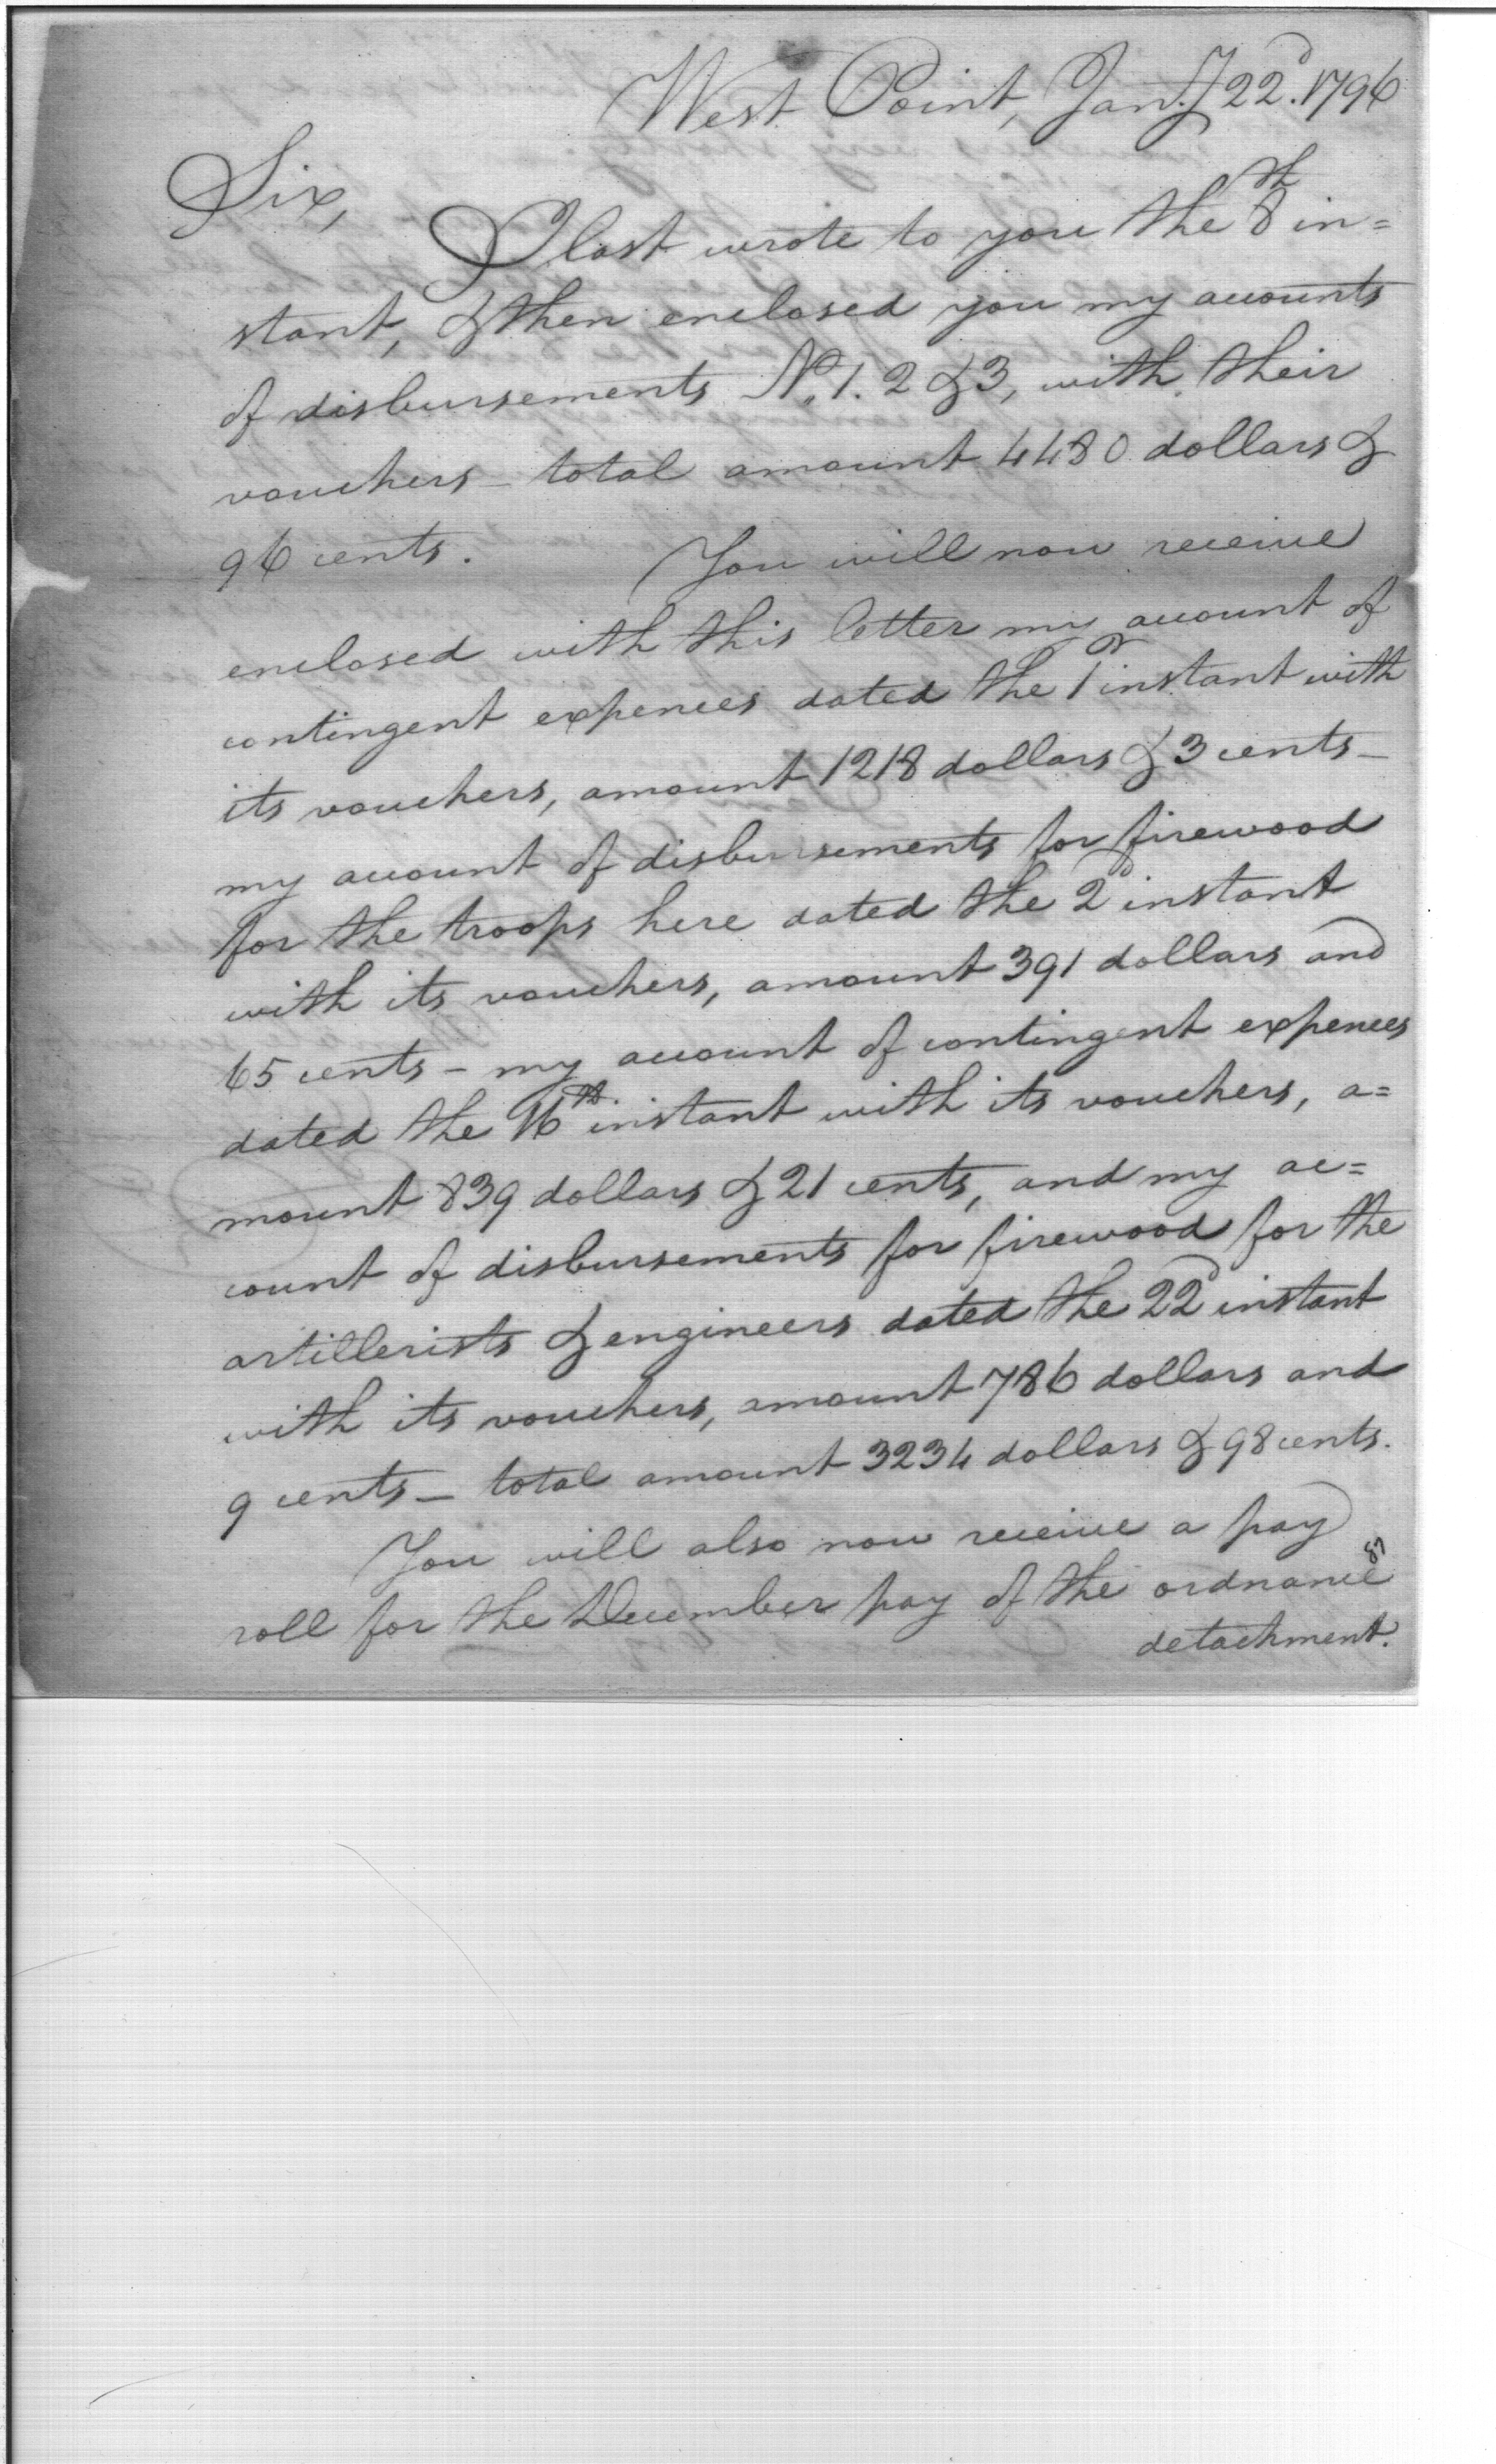 West Point, Jany 22d. 1796
Sir,
I last wrote to you the 8th in=
stant, & then enclosed you my accounts
of disbursements No. 1. 2 & 3, with their
vouchers – total amount 4480 dollars &
96 cents. You will now receive
enclosed with this letter my account of
contingent expences dated the 1st instant with
its vouchers, amount 1218 dollars & 3 cents –
my account of disbursements for firewood
for the troops here dated the 2d instant
with its vouchers, amount 391 dollars and
65 cents – my account of contingent expences
dated the 16th. instant with its vouchers, a=
mount 839 dollars & 21 cents, and my ac=
count of disbursements for firewood for the
artillerists & engineers dated the 22d instant
with its vouchers, amount 786 dollars and
9 cents – total amount 3234 dollars & 98 cents.
You will also now receive a pay
roll for the December pay of the ordnance
detachment.